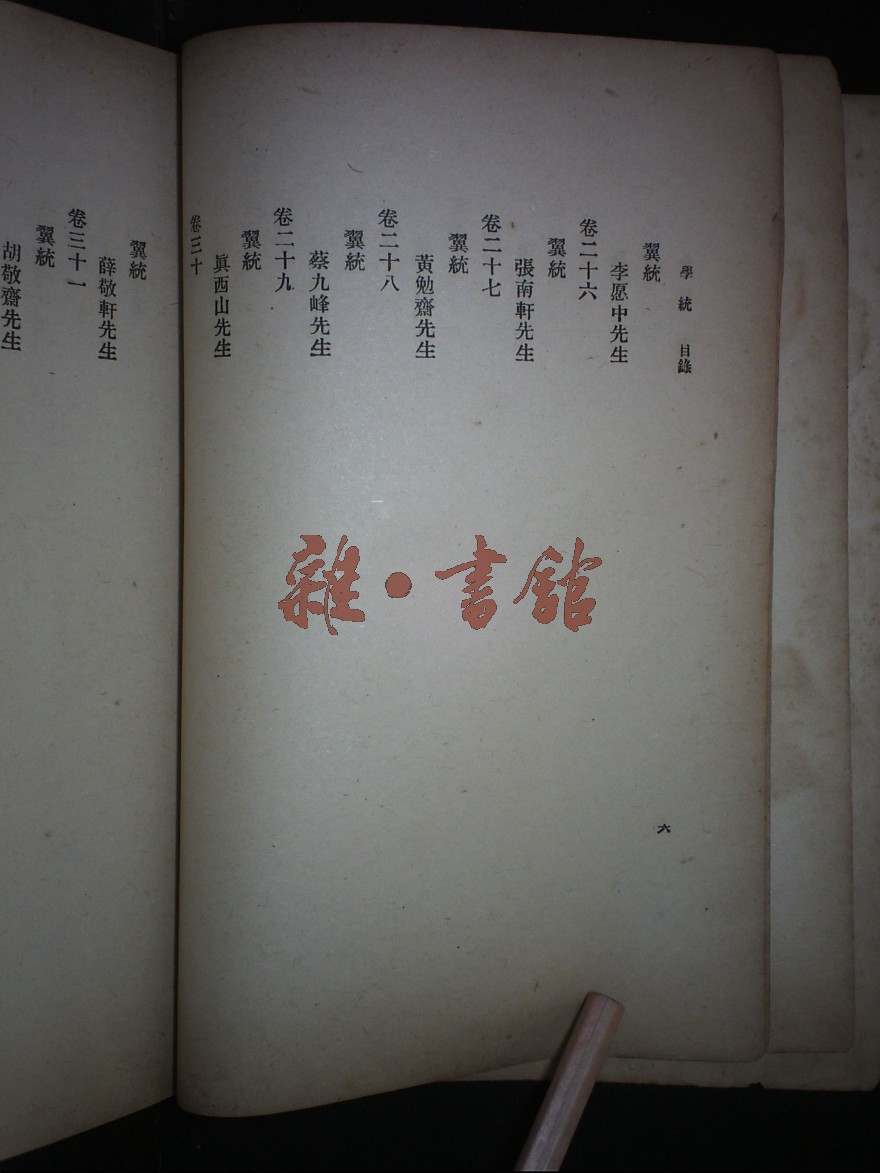 學統 目錄
翼統
李愿中先生
卷二十六
翼統
張南軒先生
卷二十七
翼統
黃勉齋先生
卷二十八
翼統
蔡九峰先生
卷二十九
翼統
眞西山先生
卷三十
六
翼統
薛敬軒先生
卷三十一
翼統
胡敬齋先生
雜·書館